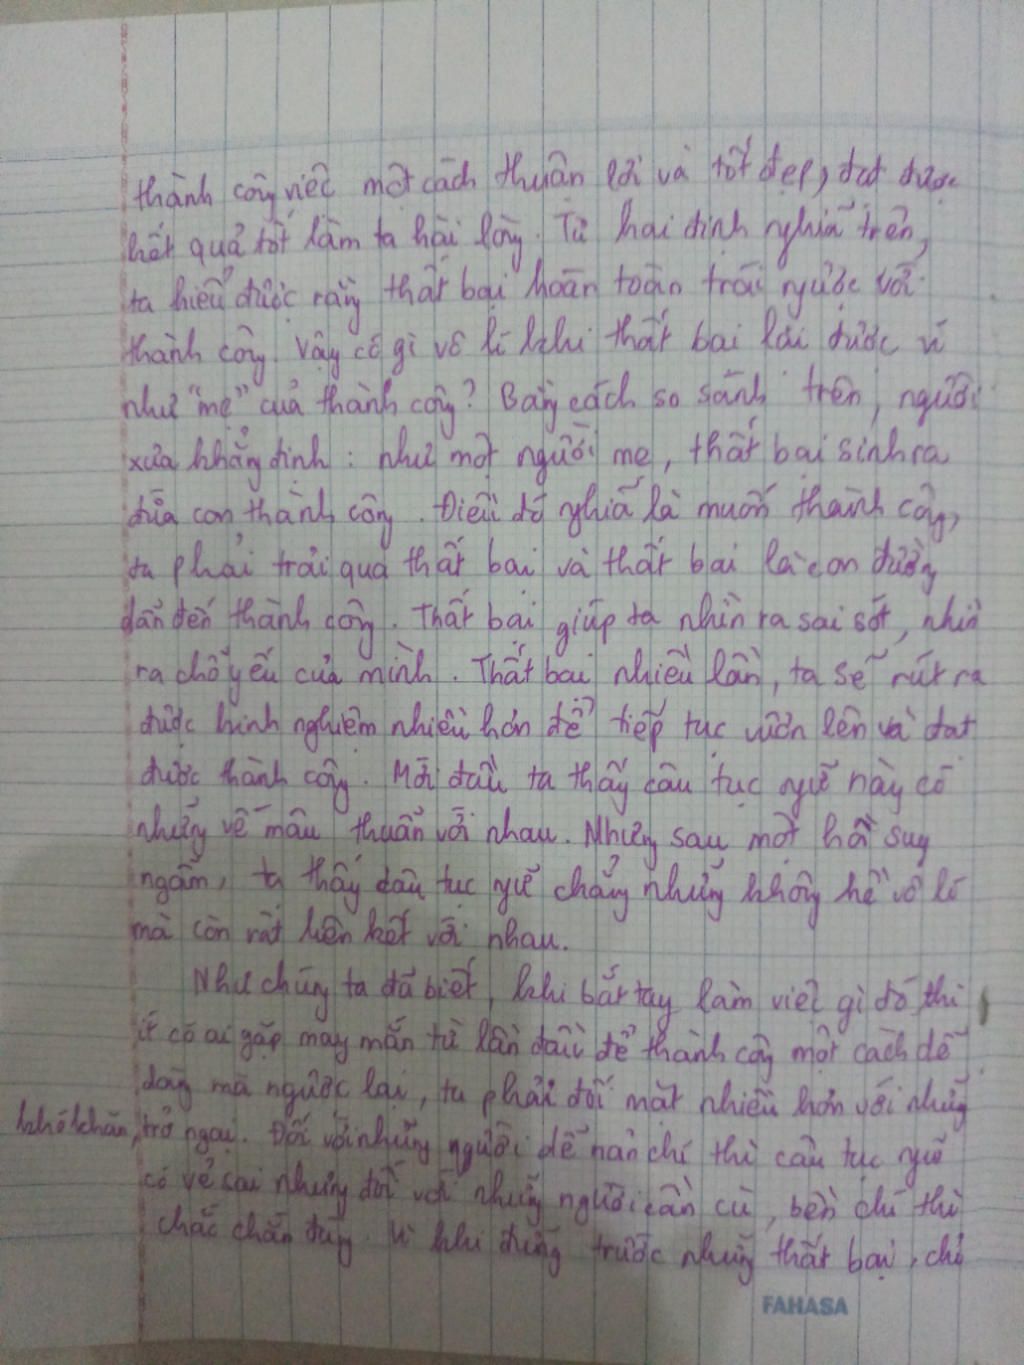 thành công việc một cách thuận lợi và tốt đẹp, đạt được
kết quả tốt làm ta hài lòng. Từ hai định nghĩa trên,
ta hiểu được rằng thất bại hoàn toàn trái ngược với
thành công. Vậy có gì vô lí khi thất bại lại được ví
như "mẹ" của thành công? Bằng cách so sánh trên, người
xưa khẳng định: như một người mẹ, thất bại sinh ra
đứa con thành công. Điều đó nghĩa là muốn thành công,
ta phải trải qua thất bại và thất bại là con đường
dẫn đến thành công. Thất bại giúp ta nhìn ra sai sót, nhìn
ra chỗ yếu của mình. Thất bại nhiều lần, ta sẽ rút ra
được kinh nghiệm nhiều hơn để tiếp tục vươn lên và đạt
được thành công. Mới đầu ta thấy câu tục ngữ này có
những vế mâu thuẫn với nhau. Nhưng sau một hồi suy
ngẫm, ta thấy câu tục ngữ chẳng những không hề vô lí
mà còn rất liên kết với nhau.
Như chúng ta đã biết, khi bắt tay làm việc gì đó thì
ít có ai gặp may mắn từ lần đầu để thành công một cách dễ
dàng mà ngược lại, ta phải đối mặt nhiều hơn với những
khó khăn, trở ngại. Đối với những người dễ nản chí thì câu tục ngữ
có vẻ sai nhưng đối với những người cần cù, bền chí thì
chắc chắn đúng. Vì khi đứng trước những thất bại, chỉ
FAHASA